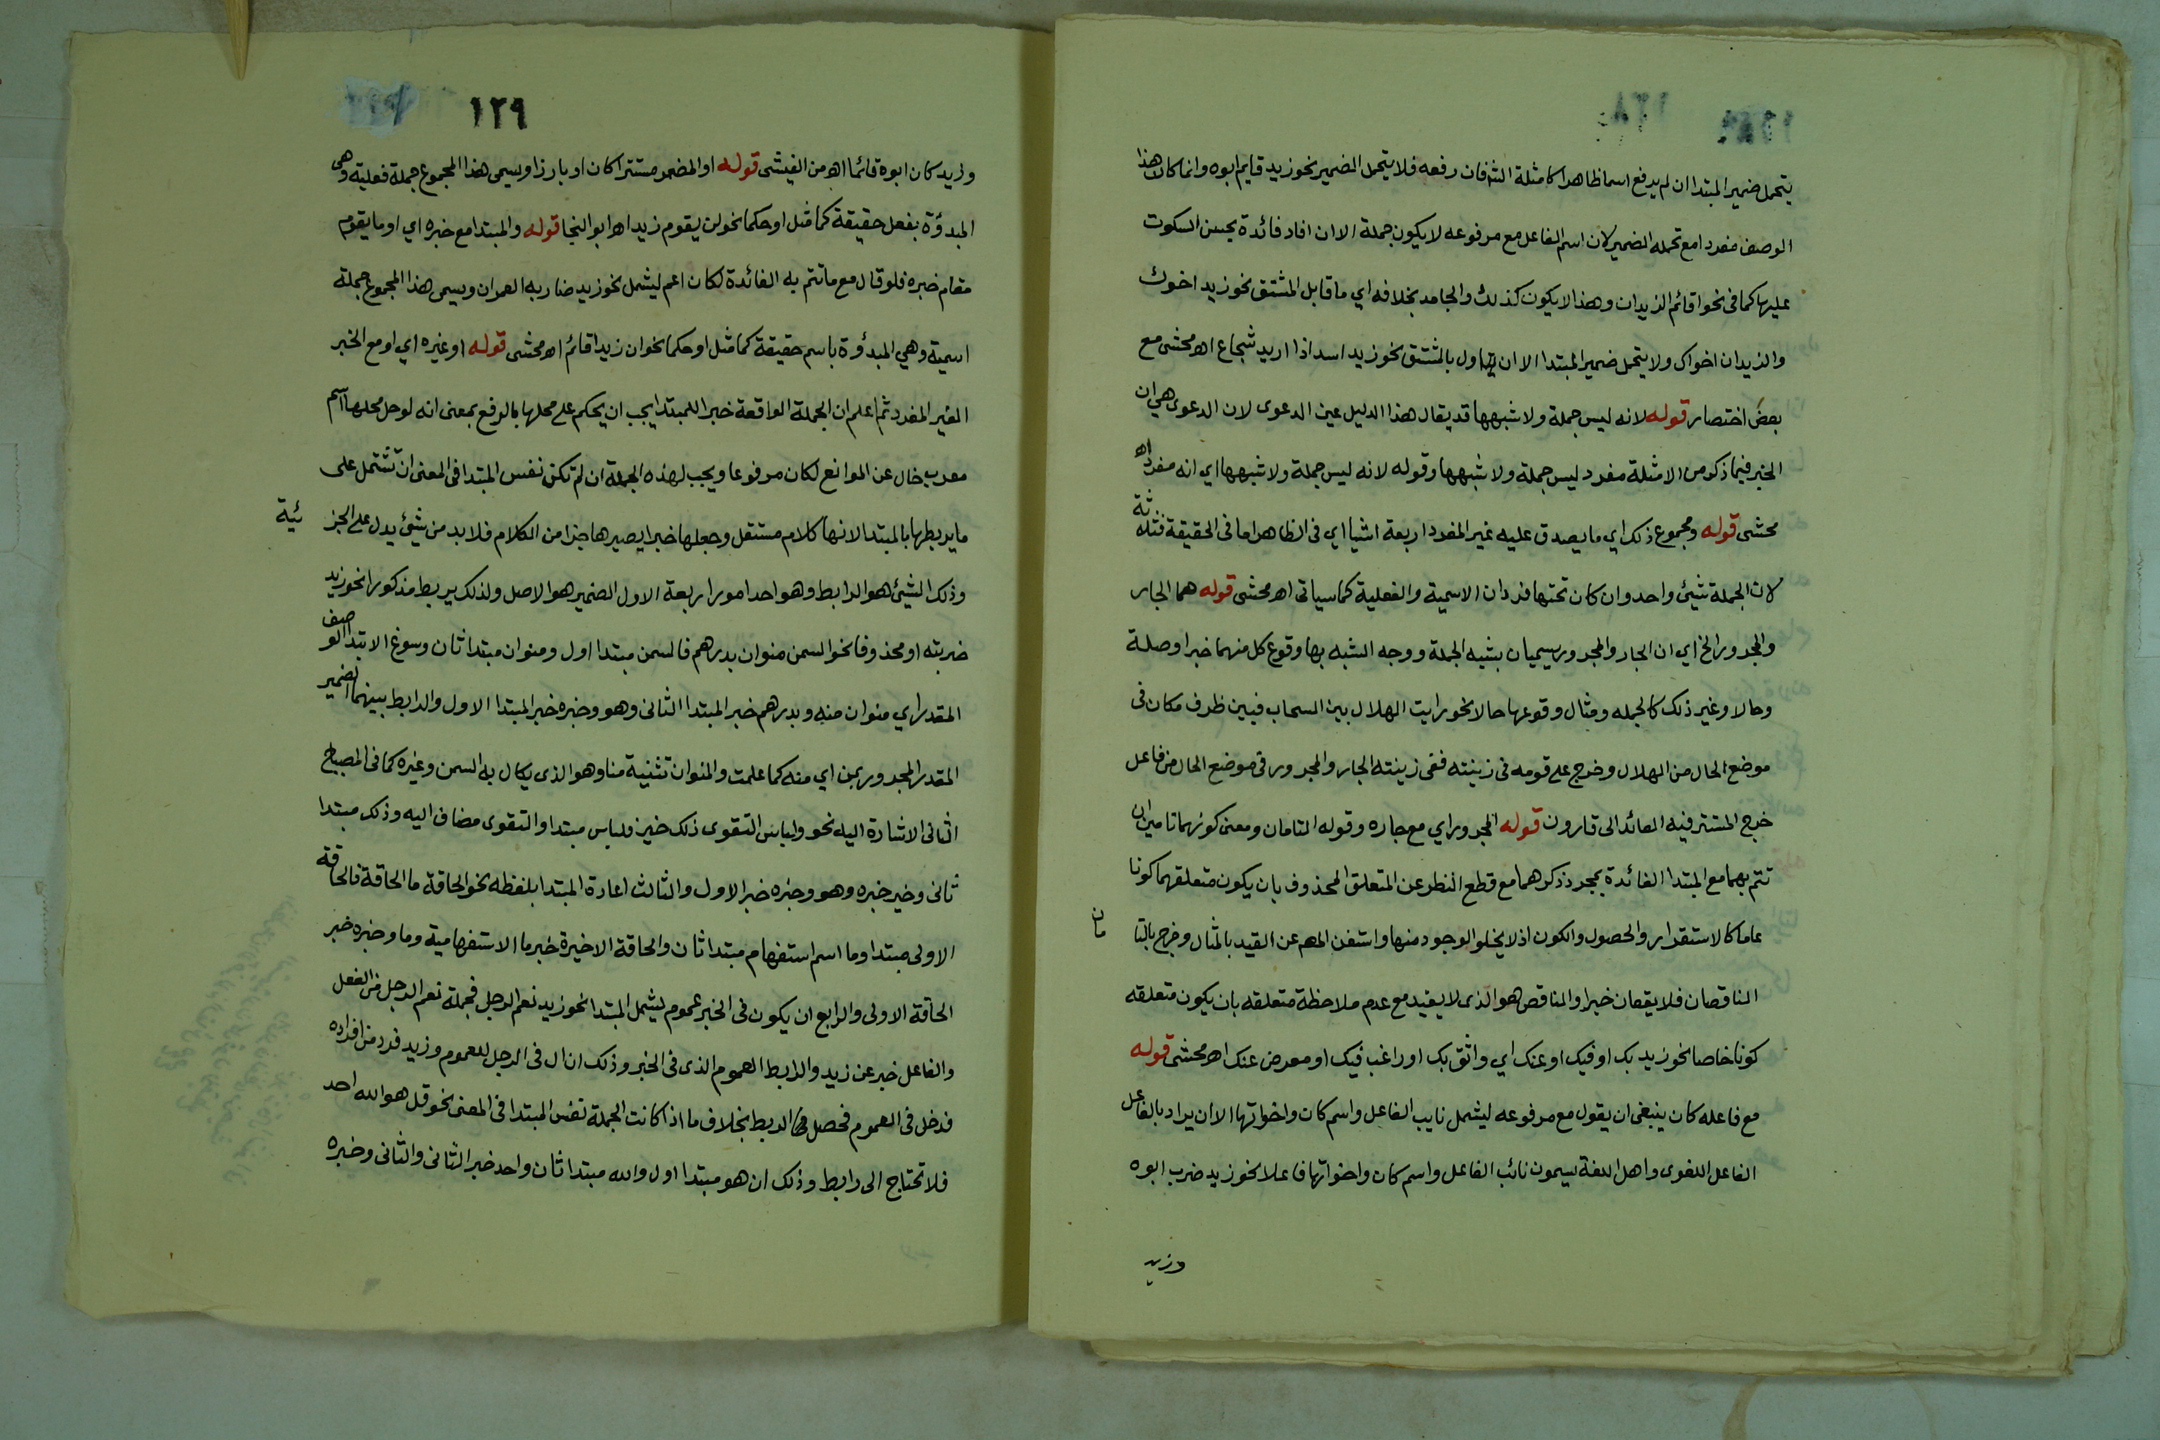 ١٢٨
يتحمل ضمير المبتدا ان لم يرفع اسما ظاهرا كامثلة الش فان رفعه فلا يتحمل الضمير نحو زيد قايم ابوه وانما كان هذا
الوصف مفردا مع تحمله الضمير لان اسم الفاعل مع مرفوعه لا يكون جملة الا ان افاد فائدة يحسن السكوت
عليها كما فى نحو اقائم الزيدان وهذا لا يكون كذلك والجامد بخلافه اي ما قابل المشتق نحو زيد اخوك
والزيدان اخواك ولا يتحمل ضمير المبتدا الا ان يتاول بالمشتق نحو زيد اسد اذا اريد شجاع اهر محشى مع
بعض اختصار قوله لانه ليس جملة ولا شبهها قد يقال هذا الدليل عين الدعوى لان الدعوى هي ان
الخبر فيما ذكر من الامثلة مفرد ليس جملة ولا شبهها وقوله لانه ليس جملة ولا شبهها اي انه مفرد اه
محشى قوله ومجموع ذلك اي ما يصدق عليه غير المفرد اربعة اشيا اي فى الظاهر اما فى الحقيقة فثلاثة
لان الجملة شيئ واحد وان كان تحتها فردان الاسمية والفعلية كما سياتى اهر محشى قوله هما الجار
والمجرور الخ اي ان الجار والمجرور يسميان بشبه الجملة ووجه الشبه بها وقوع كل منهما خبرا وصلة
وحالا وغير ذلك كالجمله ومثال وقوعها حالا نحو رايت الهلال بين السحاب فبين ظرف مكان فى
موضع الحال من الهلال وخرج على قومه فى زينته ففى زينته الجار والمجرور فى موضع الحال من فاعل
خرج المستتر فيه العائد الى قارون قوله المجرور اي مع جاره وقوله التامان ومعنى كونهما تامين ان
تتم بهما مع المبتدا الفائدة بمجرد ذكرهما مع قطع النظر عن المتعلق المحذوف بان يكون متعلقهما كونا
عاما كالاستقرار والحصول والكون اذ لا يخلو الوجود منها واستغنى المص عن القيد بالمثال وخرج بالتا مان
الناقصان فلا يقعان خبرا والناقص هو الذى لا يفيد مع عدم ملاحظة متعلقه بان يكون متعلقه
كونا خاصا نحو زيد بك او فيك او عنك اي واثق بك او راغب فيك او معرض عنك اهر محشى قوله
مع فاعله كان ينبغى ان يقول مع مرفوعه ليشمل نايب الفاعل واسم كان واخواتها الا ان يراد بالفاعل
الفاعل اللغوى واهل اللغة يسمون نائب الفاعل واسم كان واخواتها فاعلا نحو زيد ضرب ابوه
وزيد
١٢٩
وزيد كان ابوه قائما اهر من الفيشى قوله او المضمر مستترا كان او بارزا ويسمى هذا المجموع جملة فعلية وهى
المبدؤة بفعل حقيقة كما مثل او حكما نحو لن يقوم زيد اهر ابو النجا قوله والمبتدا مع خبره اي او ما يقوم
مقام خبره فلو قال مع ما تتم به الفائدة لكان اعم ليشمل نحو زيد ضاربه العمران ويسمى هذا المجموع جملة
اسمية وهي المبدؤة باسم حقيقة كما مثل او حكما نحو ان زيدا قائم اهر محشى قوله او غيره اي او مع الخبر
الغير المفرد ثم اعلم ان الجملة الواقعة خبرا للمبتدا يجب ان يحكم على محلها بالرفع بمعنى انه لو حل محلها اسم
معرب خال عن الموانع لكان مرفوعا ويجب لهذه الجملة ان لم تكن نفس المبتدا فى المعنى ان تشتمل على
ما يربطها بالمبتدا لانها كلام مستقل وجعلها خبرا يصيرها جزا من الكلام فلا بد من شيئ يدل على الجز ئية
وذلك الشيئ هو الرابط وهو احد امور اربعة الاول الضمير هو الاصل ولذلك يربط مذكورا نحو زيد
ضربته او محذوفا نحو السمن منوان بدرهم فالسمن مبتدا اول ومنوان مبتدا ثان وسوغ الابتدا الوصف
المقدر اي منوان منه وبدرهم خبر المبتدا الثانى وهو وخبره خبر المبتدا الاول والرابط بينهما الضمير
المقدر المجرور بمن اي منه كما علمت والمنوان تثنية منا وهو الذى يكال به السمن وغيره كما فى المصباح
الثانى الاشارة اليه نحو ولباس التقوى ذلك خير فلباس مبتدا والتقوى مضاف اليه وذلك مبتدا
ثانى وخير خبره وهو وخبره خبر الاول والثالث اعادة المبتدا بلفظه نحو الحاقة ما الحاقة فالحاقة
الاولى مبتدا وما اسم استفهام مبتدا ثان والحاقة الاخيرة خبر ما الاستفهامية وما وخبره خبر
الحاقة الاولى والرابع ان يكون فى الخبر عموم يشمل المبتدا نحو زيد نعم الرجل فجملة نعم الرجل من الفعل
والفاعل خبر عن زيد والرابط العموم الذى فى الخبر وذلك ان ال فى الرجل للعموم وزيد فرد من افراده
فدخل فى العموم فحصل الربط بخلاف ما اذا كانت الجملة نفس المبتدا فى المعنى نحو قل هو الله احد
فلا تحتاج الى رابط وذلك ان هو مبتدا اول والله مبتدا ثان واحد خبر الثانى والثانى وخبره